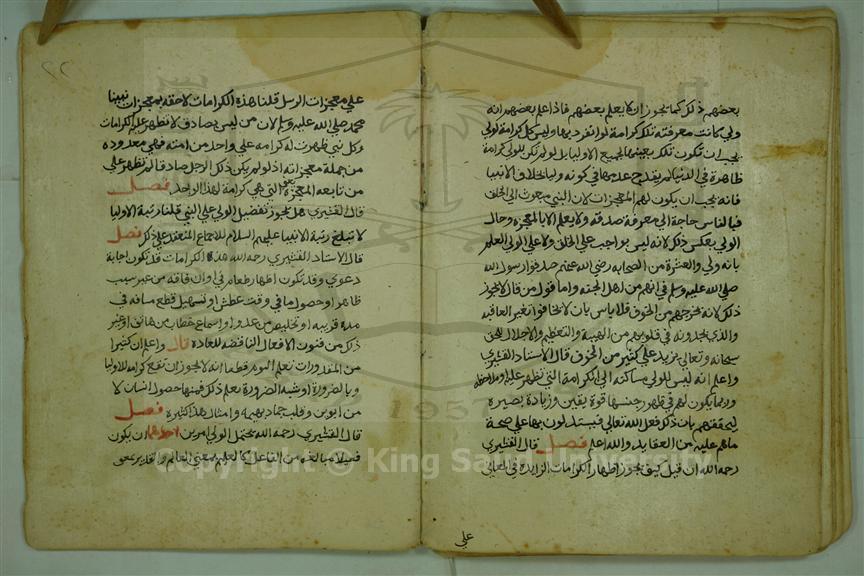 بعضهم ذلك كما يجوز ان لا يعلم بعضهم فاذا علم بعضهم انه
ولي كانت معرفته تلك كرامة له انفرد بها وليس كل كرامة لولي
يجب ان تكون تلك بعينها لجميع الاوليا بل لو لم تكن للولي كرامة
ظاهرة في الدنيا لم يقدح عدمها في كونه وليا بخلاف الانبيا
فانه يجب ان يكون لهم المعجزات لان النبي مبعوث الى الخلق
فبالناس حاجة الى معرفة صدقه ولا يعلم الا بالمعجزة وحال
الولي بعكس ذلك لانه ليس بواجب على الخلق ولا على الولي العلم
بانه ولي والعشرة من الصحابه رضي الله عنهم صدقوا رسول الله
صلى الله عليه وسلم في انهم من اهل الجنه واما قول من قال لا يجوز
ذلك لانه يخرجهم من الخوف فلا باس بان لا يخافوا تغير العاقبه
والذي يجدونه في قلوبهم من الهيبة والتعظيم والاجلال للحق
سبحانه وتعالى يزيد على كثير من الخوف قال الاستاد القشيري
واعلم انه ليس للولي مساكنه الى الكرامة التي تظهر عليه ولا ملاحظه
وربما يكون لهم في ظهور جنسها قوة يقين وزيادة بصيره
لتحققهم بان ذلك فعل الله تعالى فيستدلون بها على صحة
ماهم عليه من العقايد والله اعلم فصل قال القشيري
رحمه الله ان قيل كيف يجوز اظهار الكرامات الزايدة في المعاني
علي
على معجزات الرسل قلنا هذه الكرامات لاحقه بمعجزات نبينا
محمد صلى الله عليه وسلم لان من ليس بصادق لا تظهر عليه الكرامات
وكل نبي ظهرت له كرامه على واحد من امته فهي معدوده
من جملة معجزاته اذ لو لم يكن ذلك الرجل صادقا لم تظهر على
من تابعه المعجزة التي هي كرامة لهذا الواحد فصل
قال القشيري هل يجوز تفضيل الولي على النبي قلنا رتبة الاوليا
لا تبلغ رتبة الانبيا عليهم السلام للاجماع المنعقد على ذلك فصل
قال الاستاد القشيري رحمه الله هذه الكرامات قد تكون اجابة
دعوى وقد تكون اظهار طعام في اوان فاقه من غير سبب
ظاهر او حصول ما في وقت عطش او تسهيل قطع مسافه في
مدة قريبه او تخليص من عدو او اسماع خطاب من هاتف او غير
ذلك من فنون الافعال الناقضه للعاده قال واعلم ان كثيرا
من المقدورات نعلم اليوم قطعا انه لا يجوز ان تقع كرامه للاوليا
وبالضرورة او شبه الضرورة يعلم ذلك فمنها حصول انسان لا
من ابوين وقلب جماد بهيمه وامثال هذا كثيره فصل
قال القشيري رحمه الله يحتمل الولي امرين احدهما ان يكون
فعيلا مبالغه من الفاعل كالعليم بمعنى العالم والقدير بمعنى
Copyright © King Saud University
1957